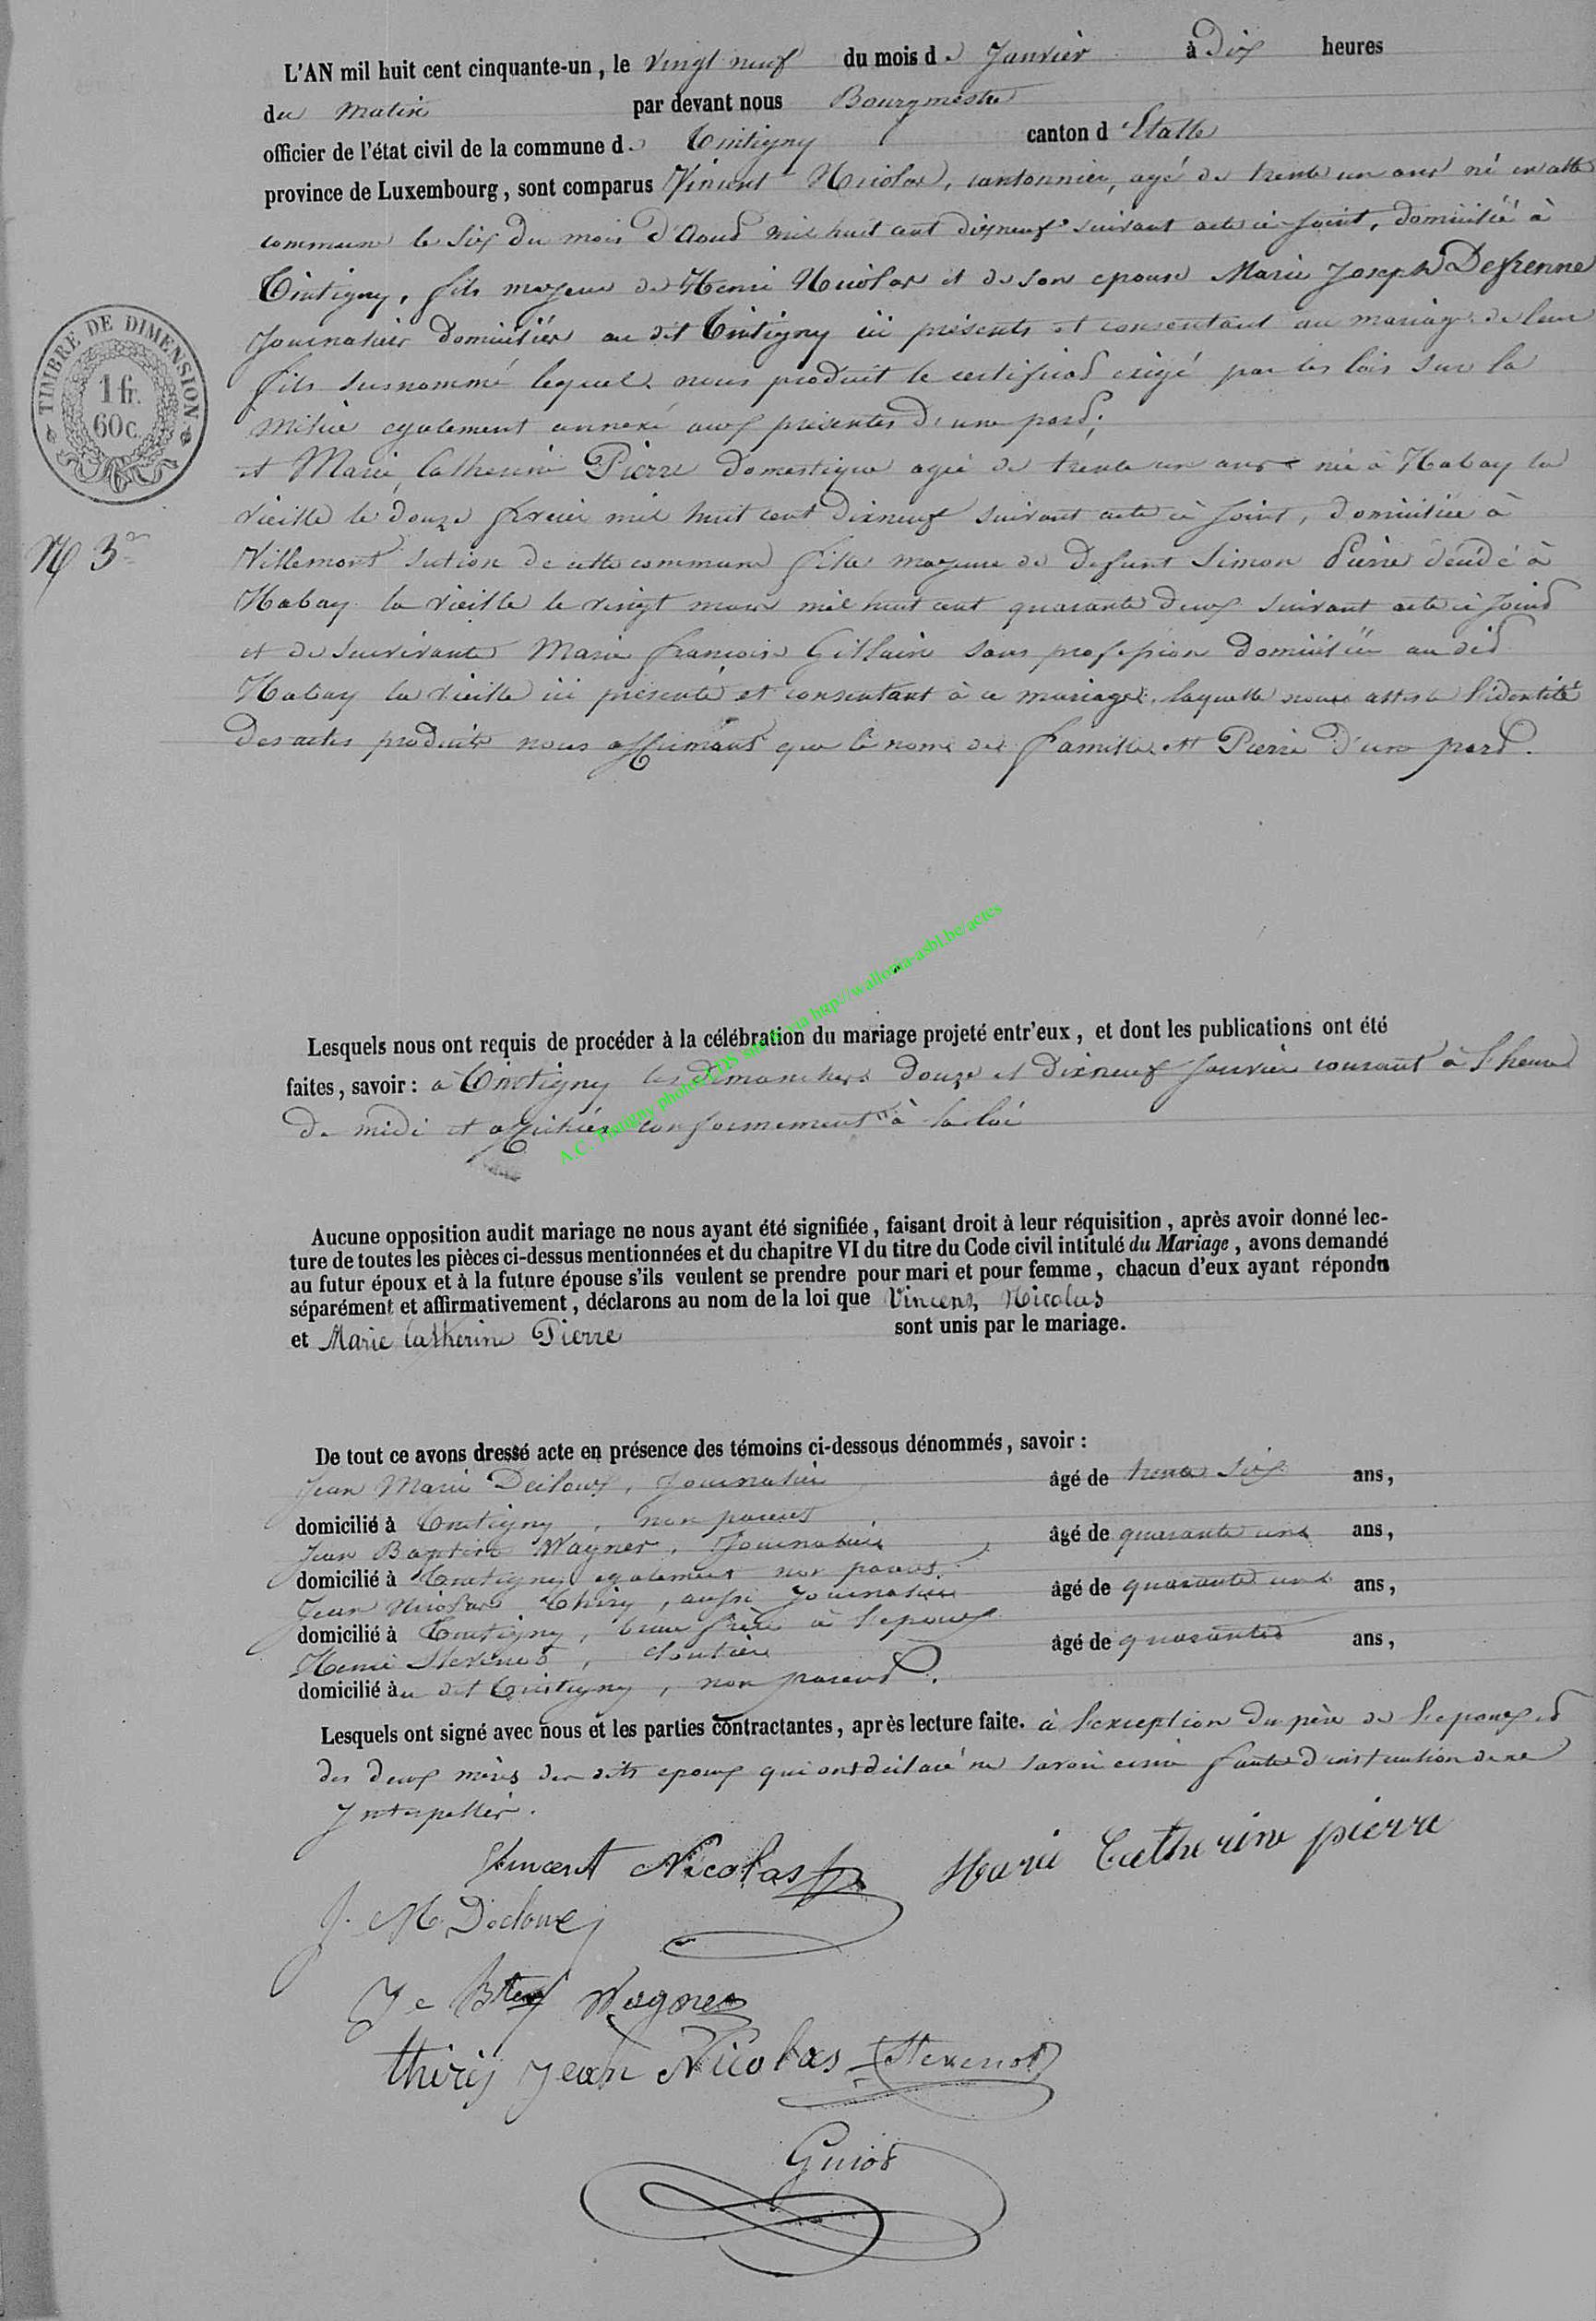 L'AN mil huit cent cinquante-un, le vingt neuf du mois de Janvier à Dix heures
du matin par devant nous Bourgmestre
officier de l'état civil de la commune de Tintigny canton d'Etalle
province de Luxembourg, sont comparus Vincent Nicolas, cantonnier, agé de trente un ans né en cette
commune le six du mois d'Aout mil huit cent dixneuf suivant acte ci joint, domicilié à
Tintigny, fils majeur de Henri Nicolas et de son epouse Marie Joseph Defrenne
Journaliers domiciliés au dit Tintigny ici présents et consentant au mariage de leur
fils susnommé lequel nous produit le certificat exigé par les lois sur la
Milice egalement annexé aux présentes d'une part;
et Marie Catherine Pierre domestique agée de trente un ans née à Habay la
vieille le douze fevrier mil huit cent dixneuf suivant acte ci joint, domiciliée à
Villemont section de cette commune fille majeure de defunt Simon Pierre décédé à
Habay la vieille le vingt mars mil huit cent quarante deux suivant acte ci joint
et de survivante Marie françoise Gillain sans profession domiciliée au dit
Habay la vieille ici présente et consentant à ce mariage, laquelle nous atteste l'identité
des actes produits nous affirmant que le nom de famille est Pierre d'une part.
TIMBRE DE DIMENSION
1 fr.
60 c.
N 3
Lesquels nous ont requis de procéder à la célébration du mariage projeté entr'eux, et dont les publications ont été
faites, savoir : à Tintigny les dimanches douze et dixneuf Janvier courant à l'heure
de midi et affichées conformement à la loi
A.C. Tintigny photos via http://wallonia-asbl.be/actes
Aucune opposition audit mariage ne nous ayant été signifiée, faisant droit à leur réquisition, après avoir donné lec-
ture de toutes les pièces ci-dessus mentionnées et du chapitre VI du titre du Code civil intitulé du Mariage, avons demandé
au futur époux et à la future épouse s'ils veulent se prendre pour mari et pour femme, chacun d'eux ayant répondu
séparément et affirmativement, déclarons au nom de la loi que Vincent Nicolas
et Marie Catherine Pierre sont unis par le mariage.
De tout ce avons dressé acte en présence des témoins ci-dessous dénommés, savoir :
Jean Marie Decloux, Journalier âgé de trente six ans,
domicilié à Tintigny, non parent
Jean Baptiste Wagner, Journalier âgé de quarante un ans,
domicilié à Tintigny egalement non parent
Jean Nicolas Thiry, aussi Journalier âgé de quarante un ans,
domicilié à Tintigny, beau frère à l'epoux
Henri Stevenot, cloutier âgé de quarante ans,
domicilié au dit Tintigny, non parent.
Lesquels ont signé avec nous et les parties contractantes, après lecture faite. à l'exception du père de l'epoux et
des deux mères des dits epoux qui ont déclaré ne savoir ecrire faute d'instruction de ce
Interpellés.
Vincent Nicolas Marie Catherine pierre
J. M. Decloux
Je Bte Wagner
thiry jean Nicolas Stevenot
Guiot